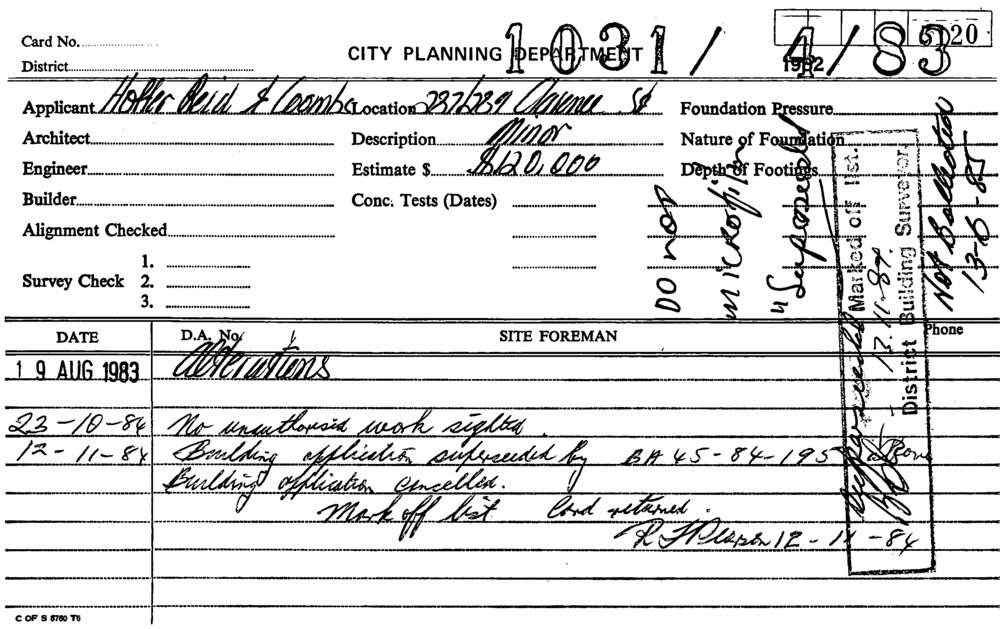 Card No.
District
CITY PLANNING DEPARTMENT
1031/4/83
1982
20
Applicant Hoffer Reid & Coombs Location 237/239 Clarence St Foundation Pressure
Architect Description Minor Nature of Foundation
Engineer Estimate $ $120,000 Depth of Footings
Builder Conc. Tests (Dates)
Alignment Checked
1.
Survey Check 2.
3.
Do not
microfilm
" Superseded
Superseded Marked off list.
13.11.84.
District Building Surveyor.
Not
13-6-85
DATE D.A. No. SITE FOREMAN Phone
19 AUG 1983 Alterations
23-10-84 No unauthorised work sighted.
12-11-84 Building application superseded by BA 45-84-195 above
Building application cancelled.
Mark off list Card returned.
12-11-84
C OF S 5750 T6